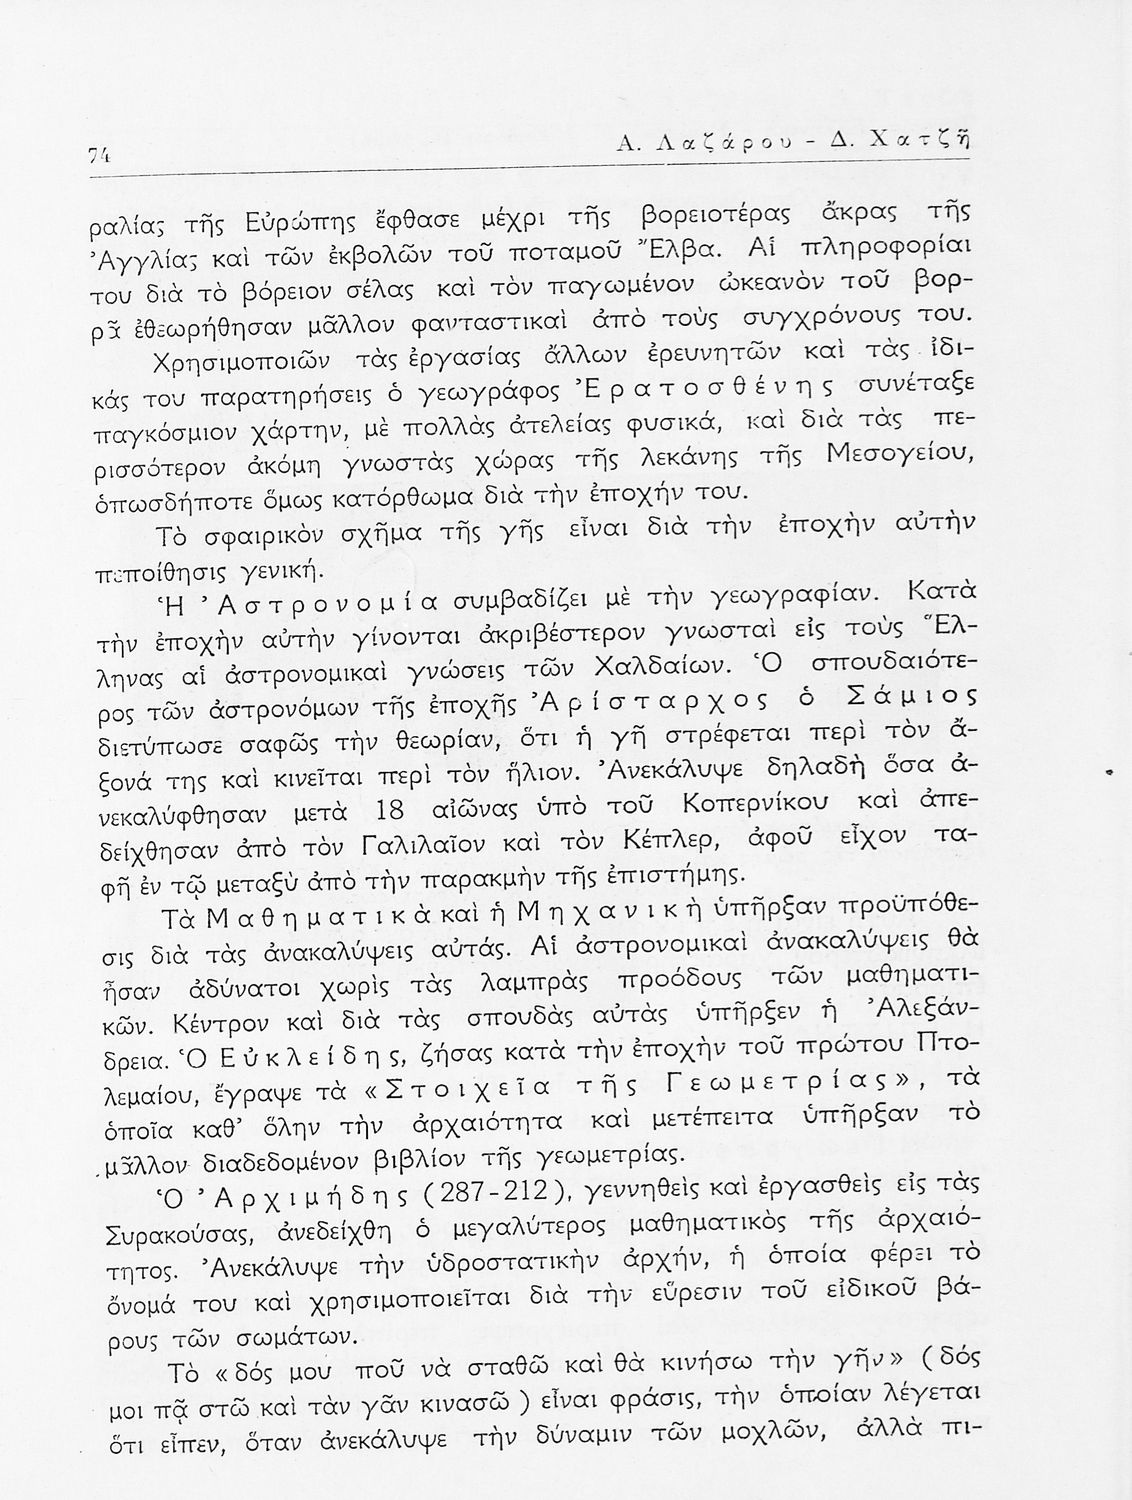 74
Α. Λαζάρου - Δ. Χατζῆ
ραλίας τῆς Εὐρώπης ἔφθασε μέχρι τῆς βορειοτέρας ἄκρας τῆς
Ἀγγλίας καὶ τῶν ἐκβολῶν τοῦ ποταμοῦ Ἔλβα. Αἱ πληροφορίαι
του διὰ τὸ βόρειον σέλας καὶ τὸν παγωμένον ὠκεανὸν τοῦ βορ-
ρᾶ ἐθεωρήθησαν μᾶλλον φανταστικαὶ ἀπὸ τοὺς συγχρόνους του.
Χρησιμοποιῶν τὰς ἐργασίας ἄλλων ἐρευνητῶν καὶ τὰς ἰδι-
κάς του παρατηρήσεις ὁ γεωγράφος Ἐρατοσθένης συνέταξε
παγκόσμιον χάρτην, μὲ πολλὰς ἀτελείας φυσικά, καὶ διὰ τὰς πε-
ρισσότερον ἀκόμη γνωστὰς χώρας τῆς λεκάνης τῆς Μεσογείου,
ὁπωσδήποτε ὅμως κατόρθωμα διὰ τὴν ἐποχήν του.
Τὸ σφαιρικὸν σχῆμα τῆς γῆς εἶναι διὰ τὴν ἐποχὴν αὐτὴν
πεποίθησις γενική.
Ἡ Ἀστρονομία συμβαδίζει μὲ τὴν γεωγραφίαν. Κατὰ
τὴν ἐποχὴν αὐτὴν γίνονται ἀκριβέστερον γνωσταὶ εἰς τοὺς Ἕλ-
ληνας αἱ ἀστρονομικαὶ γνώσεις τῶν Χαλδαίων. Ὁ σπουδαιότε-
ρος τῶν ἀστρονόμων τῆς ἐποχῆς Ἀρίσταρχος ὁ Σάμιος
διετύπωσε σαφῶς τὴν θεωρίαν, ὅτι ἡ γῆ στρέφεται περὶ τὸν ἄ-
ξονά της καὶ κινεῖται περὶ τὸν ἥλιον. Ἀνεκάλυψε δηλαδὴ ὅσα ἀ-
νεκαλύφθησαν μετὰ 18 αἰῶνας ὑπὸ τοῦ Κοπερνίκου καὶ ἀπε-
δείχθησαν ἀπὸ τὸν Γαλιλαῖον καὶ τὸν Κέπλερ, ἀφοῦ εἶχον τα-
φῆ ἐν τῷ μεταξὺ ἀπὸ τὴν παρακμὴν τῆς ἐπιστήμης.
Τὰ Μαθηματικὰ καὶ ἡ Μηχανικὴ ὑπῆρξαν προϋπόθε-
σις διὰ τὰς ἀνακαλύψεις αὐτάς. Αἱ ἀστρονομικαὶ ἀνακαλύψεις θὰ
ἦσαν ἀδύνατοι χωρὶς τὰς λαμπρὰς προόδους τῶν μαθηματι-
κῶν. Κέντρον καὶ διὰ τὰς σπουδὰς αὐτὰς ὑπῆρξεν ἡ Ἀλεξάν-
δρεια. Ὁ Εὐκλείδης, ζήσας κατὰ τὴν ἐποχὴν τοῦ πρώτου Πτο-
λεμαίου, ἔγραψε τὰ «Στοιχεῖα τῆς Γεωμετρίας», τὰ
ὁποῖα καθ’ ὅλην τὴν ἀρχαιότητα καὶ μετέπειτα ὑπῆρξαν τὸ
μᾶλλον διαδεδομένον βιβλίον τῆς γεωμετρίας.
Ὁ Ἀρχιμήδης (287-212), γεννηθεὶς καὶ ἐργασθεὶς εἰς τὰς
Συρακούσας, ἀνεδείχθη ὁ μεγαλύτερος μαθηματικὸς τῆς ἀρχαιό-
τητος. Ἀνεκάλυψε τὴν ὑδροστατικὴν ἀρχήν, ἡ ὁποία φέρει τὸ
ὄνομά του καὶ χρησιμοποιεῖται διὰ τὴν εὕρεσιν τοῦ εἰδικοῦ βά-
ρους τῶν σωμάτων.
Τὸ «δός μου ποῦ νὰ σταθῶ καὶ θὰ κινήσω τὴν γῆν» (δός
μοι πᾷ στῶ καὶ τὰν γᾶν κινασῶ) εἶναι φράσις, τὴν ὁποίαν λέγεται
ὅτι εἶπεν, ὅταν ἀνεκάλυψε τὴν δύναμιν τῶν μοχλῶν, ἀλλὰ πι-